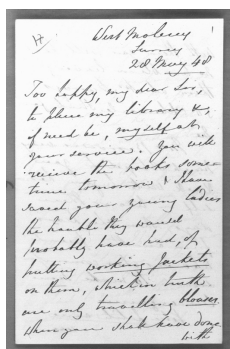 West Molesey
Surrey
28 May 48
Too happy, my dear Sir,
to place my library &,
if need be, myself at
your service. You will
receive the books some
time tomorrow & I have
saved your young ladies
the trouble they would
probably have had, of
putting working jackets
on them, which in truth
are only travelling blouses.
When you shall have done
with